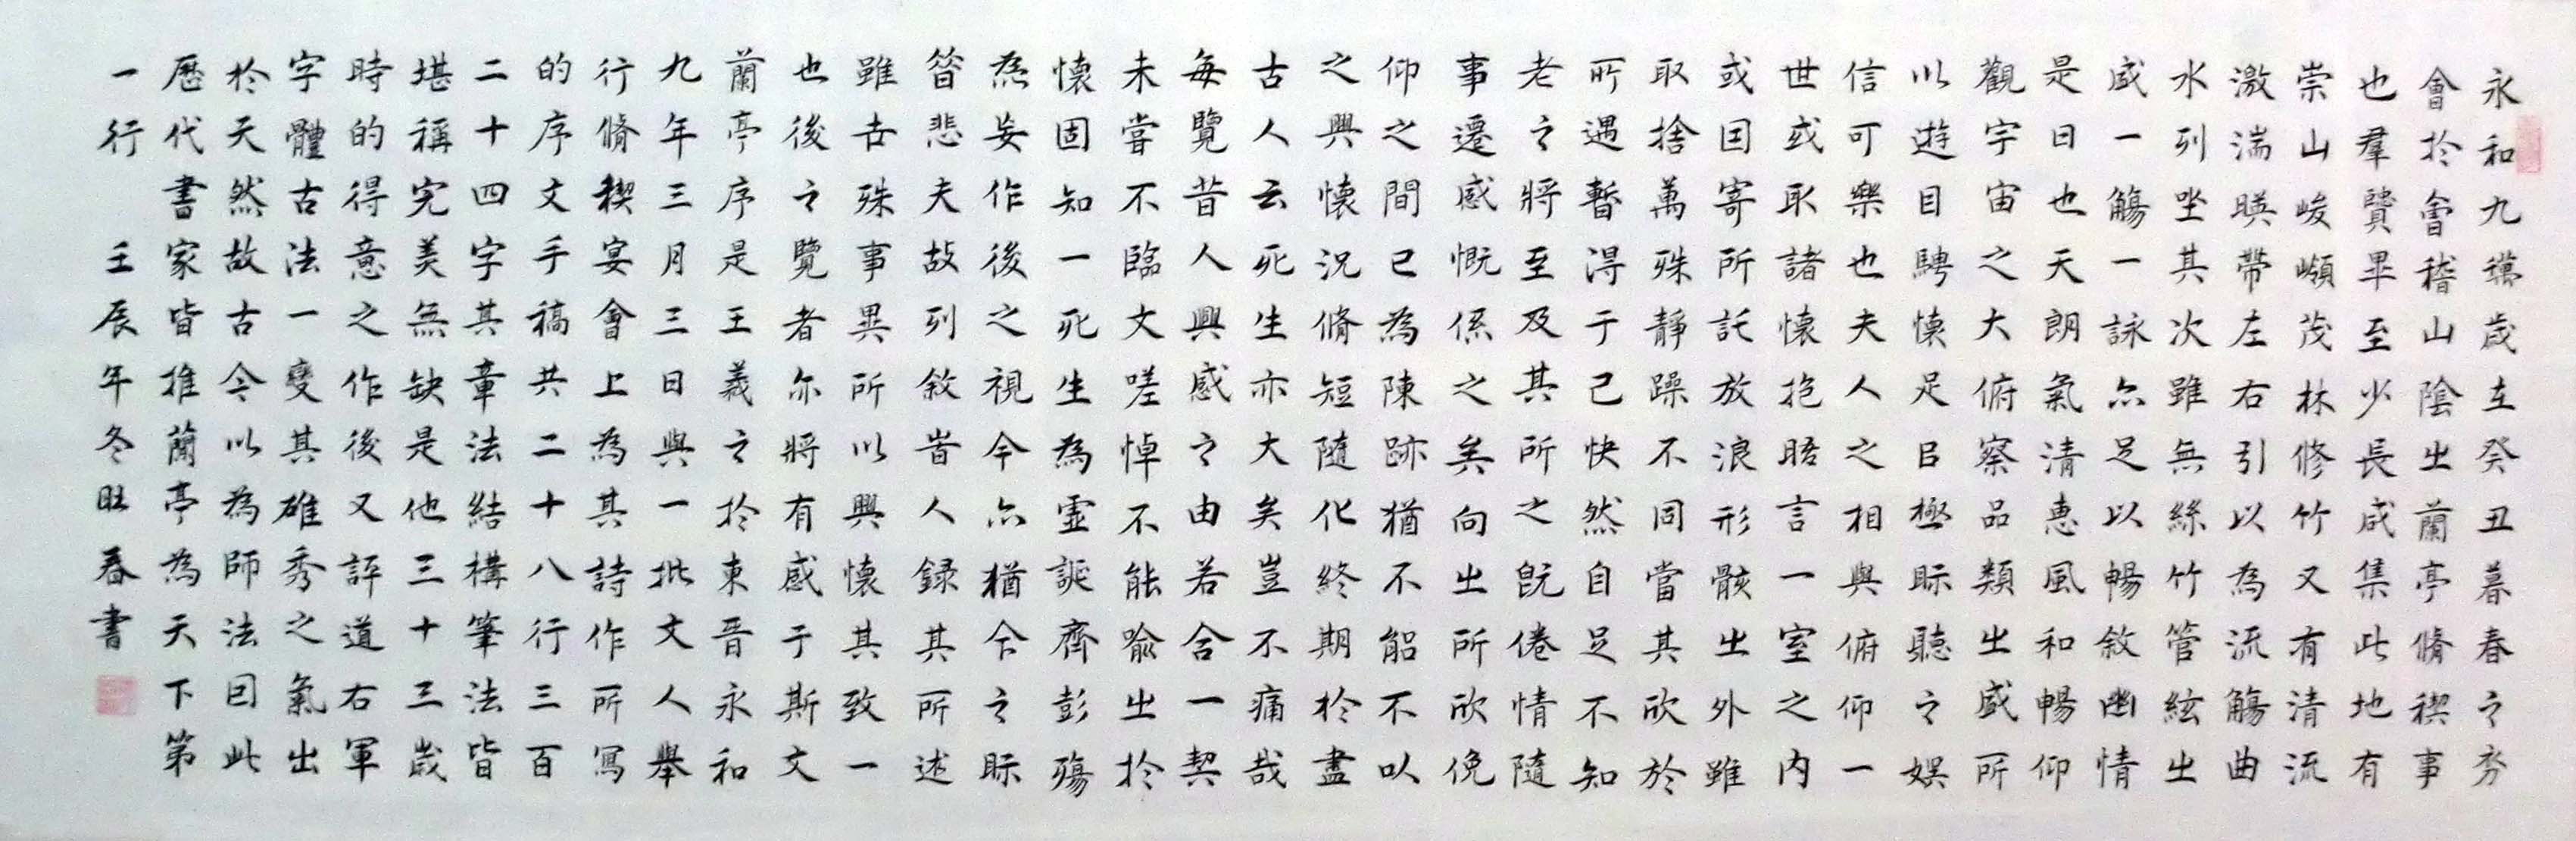 永和九年歲在癸丑暮春之初
會於會稽山陰之蘭亭脩禊事
也羣賢畢至少長咸集此地有
崇山峻嶺茂林修竹又有清流
激湍暎帶左右引以為流觴曲
水列坐其次雖無絲竹管絃之
盛一觴一詠亦足以暢敘幽情
是日也天朗氣清惠風和暢仰
觀宇宙之大俯察品類之盛所
以遊目騁懷足以極視聽之娛
信可樂也夫人之相與俯仰一
世或取諸懷抱晤言一室之內
或因寄所託放浪形骸之外雖
取捨萬殊靜躁不同當其欣於
所遇暫得于己快然自足不知
老之將至及其所之既倦情隨
事遷感慨係之矣向之所欣俛
仰之間已為陳跡猶不能不以
之興懷況脩短隨化終期於盡
古人云死生亦大矣豈不痛哉
每覽昔人興感之由若合一契
未嘗不臨文嗟悼不能喻之於
懷固知一死生為虛誕齊彭殤
為妄作後之視今亦猶今之視
昔悲夫故列敘時人録其所述
雖世殊事異所以興懷其致一
也後之覽者亦將有感于斯文
蘭亭序是王羲之於東晉永和
九年三月三日與一批文人舉
行脩禊宴會上為其詩作所寫
的序文手稿共二十八行三百
二十四字其章法結構筆法皆
堪稱完美無缺是他三十三歲
時的得意之作後又評道右軍
字體古法一變其雄秀之氣出
於天然故古今以為師法因此
歷代書家皆推蘭亭為天下第
一行 壬辰年冬旺春書